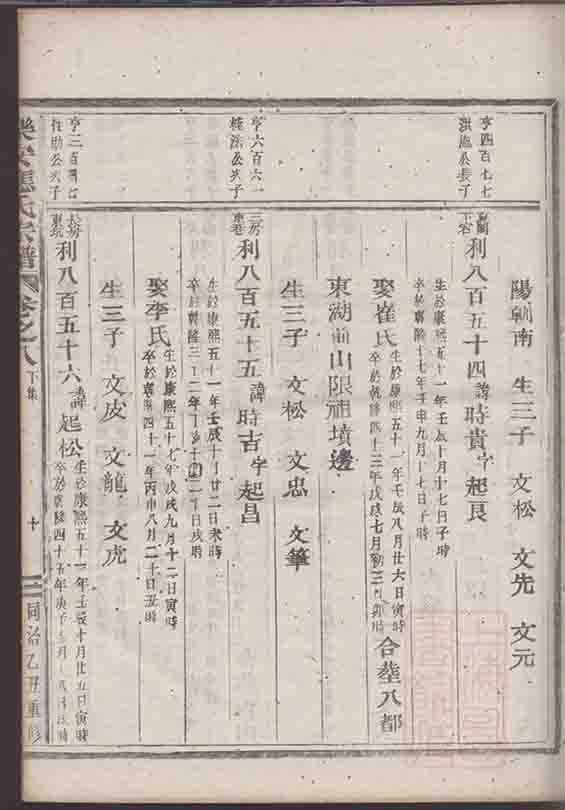 陽朝南 生三子 文松 文先 文元
亨四百七七
洪 公長子
利八百五十四諱時貴字起良
生於康熙五十一年壬辰十月十七日子時
卒於乾隆十七年壬申九月十七日子時
娶崔氏
生於康熙五十一年壬辰八月廿六日寅時
卒於乾隆四十三年戊戌七月初三日寅時
合塟八都
東湖前山限祖墳邊
生三子 文松 文忠 文筆
亨六百六一
公次子
三房
東巷
利八百五十五諱時吉字起昌
生於康熙五十一年壬辰十一月廿二日未時
卒於乾隆三十二年丁亥十 月二十日戌時
娶李氏
生於康熙五十七年戊戌九月十二日寅時
卒於乾隆四十一年丙申八月二十日丑時
生三子 文皮 文龍 文虎
亨三百
助公次子
大房
東坑
利八百五十六諱起松
生於康熙五十一年壬辰十月廿五日寅時
卒於乾隆四十五年庚子 月 日戌時
氏宗譜 卷之八 下集
十
同治乙丑重修